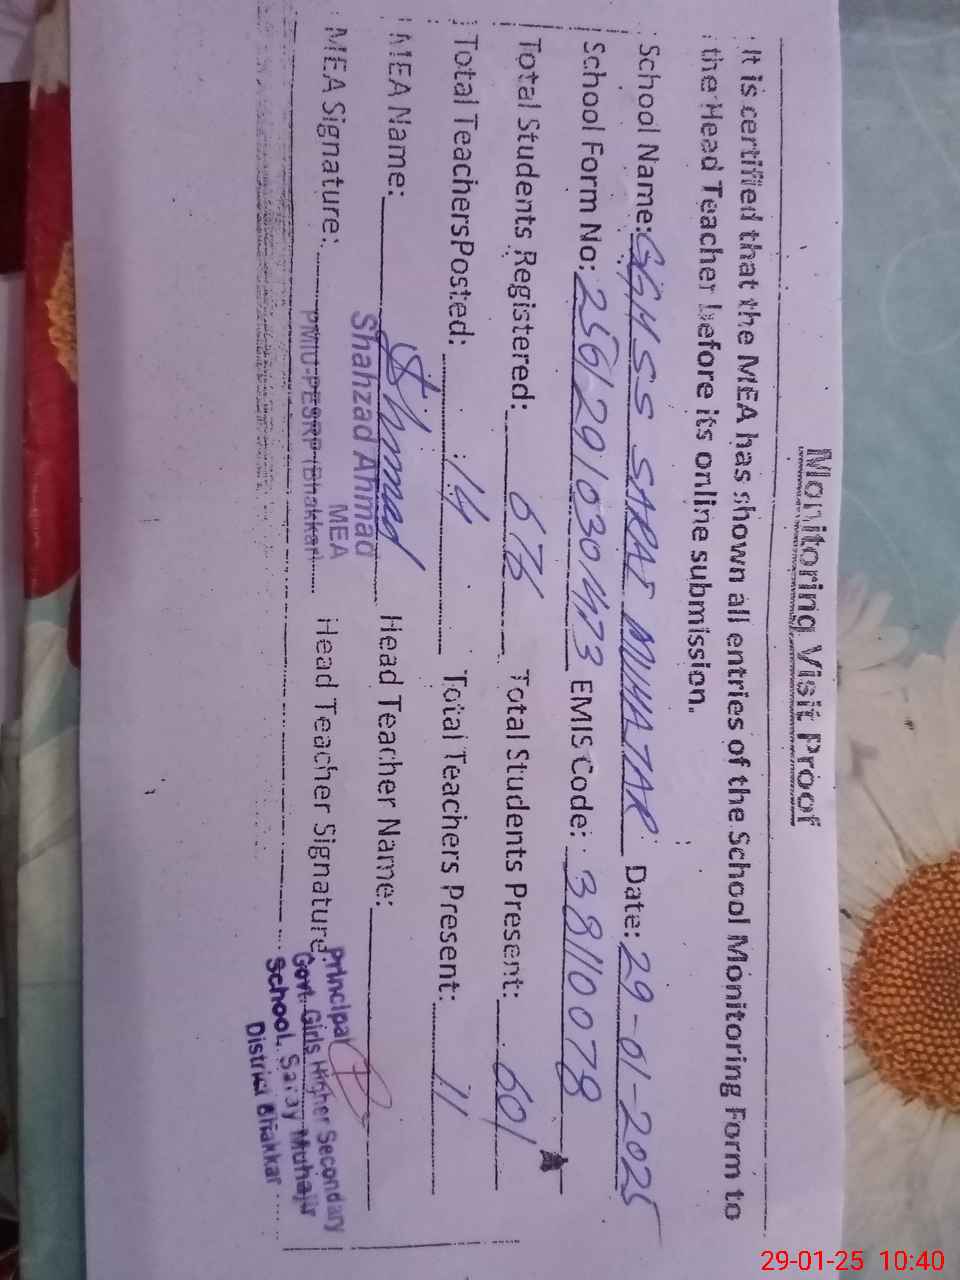 Monitoring Visit Proof
It is certified that the MEA has shown all entries of the School Monitoring Form to
the Head Teacher before its online submission.
School Name: GGHSS SARAI MUHAJAR Date: 29-01-2025
School Form No: 256/291030473 EMIS Code: 38110078
Total Students Registered: 676 Total Students Present: 601
Total Teachers Posted: 14 Total Teachers Present: 11
MEA Name: Head Teacher Name:
Shahzad Ahmad
MEA
MEA Signature: PMIU-PESRP (Bhakkar) Head Teacher Signature:
Principal
Govt. Girls Higher Secondary
School, Saray Muhajir
District Bhakkar
29-01-25 10:40